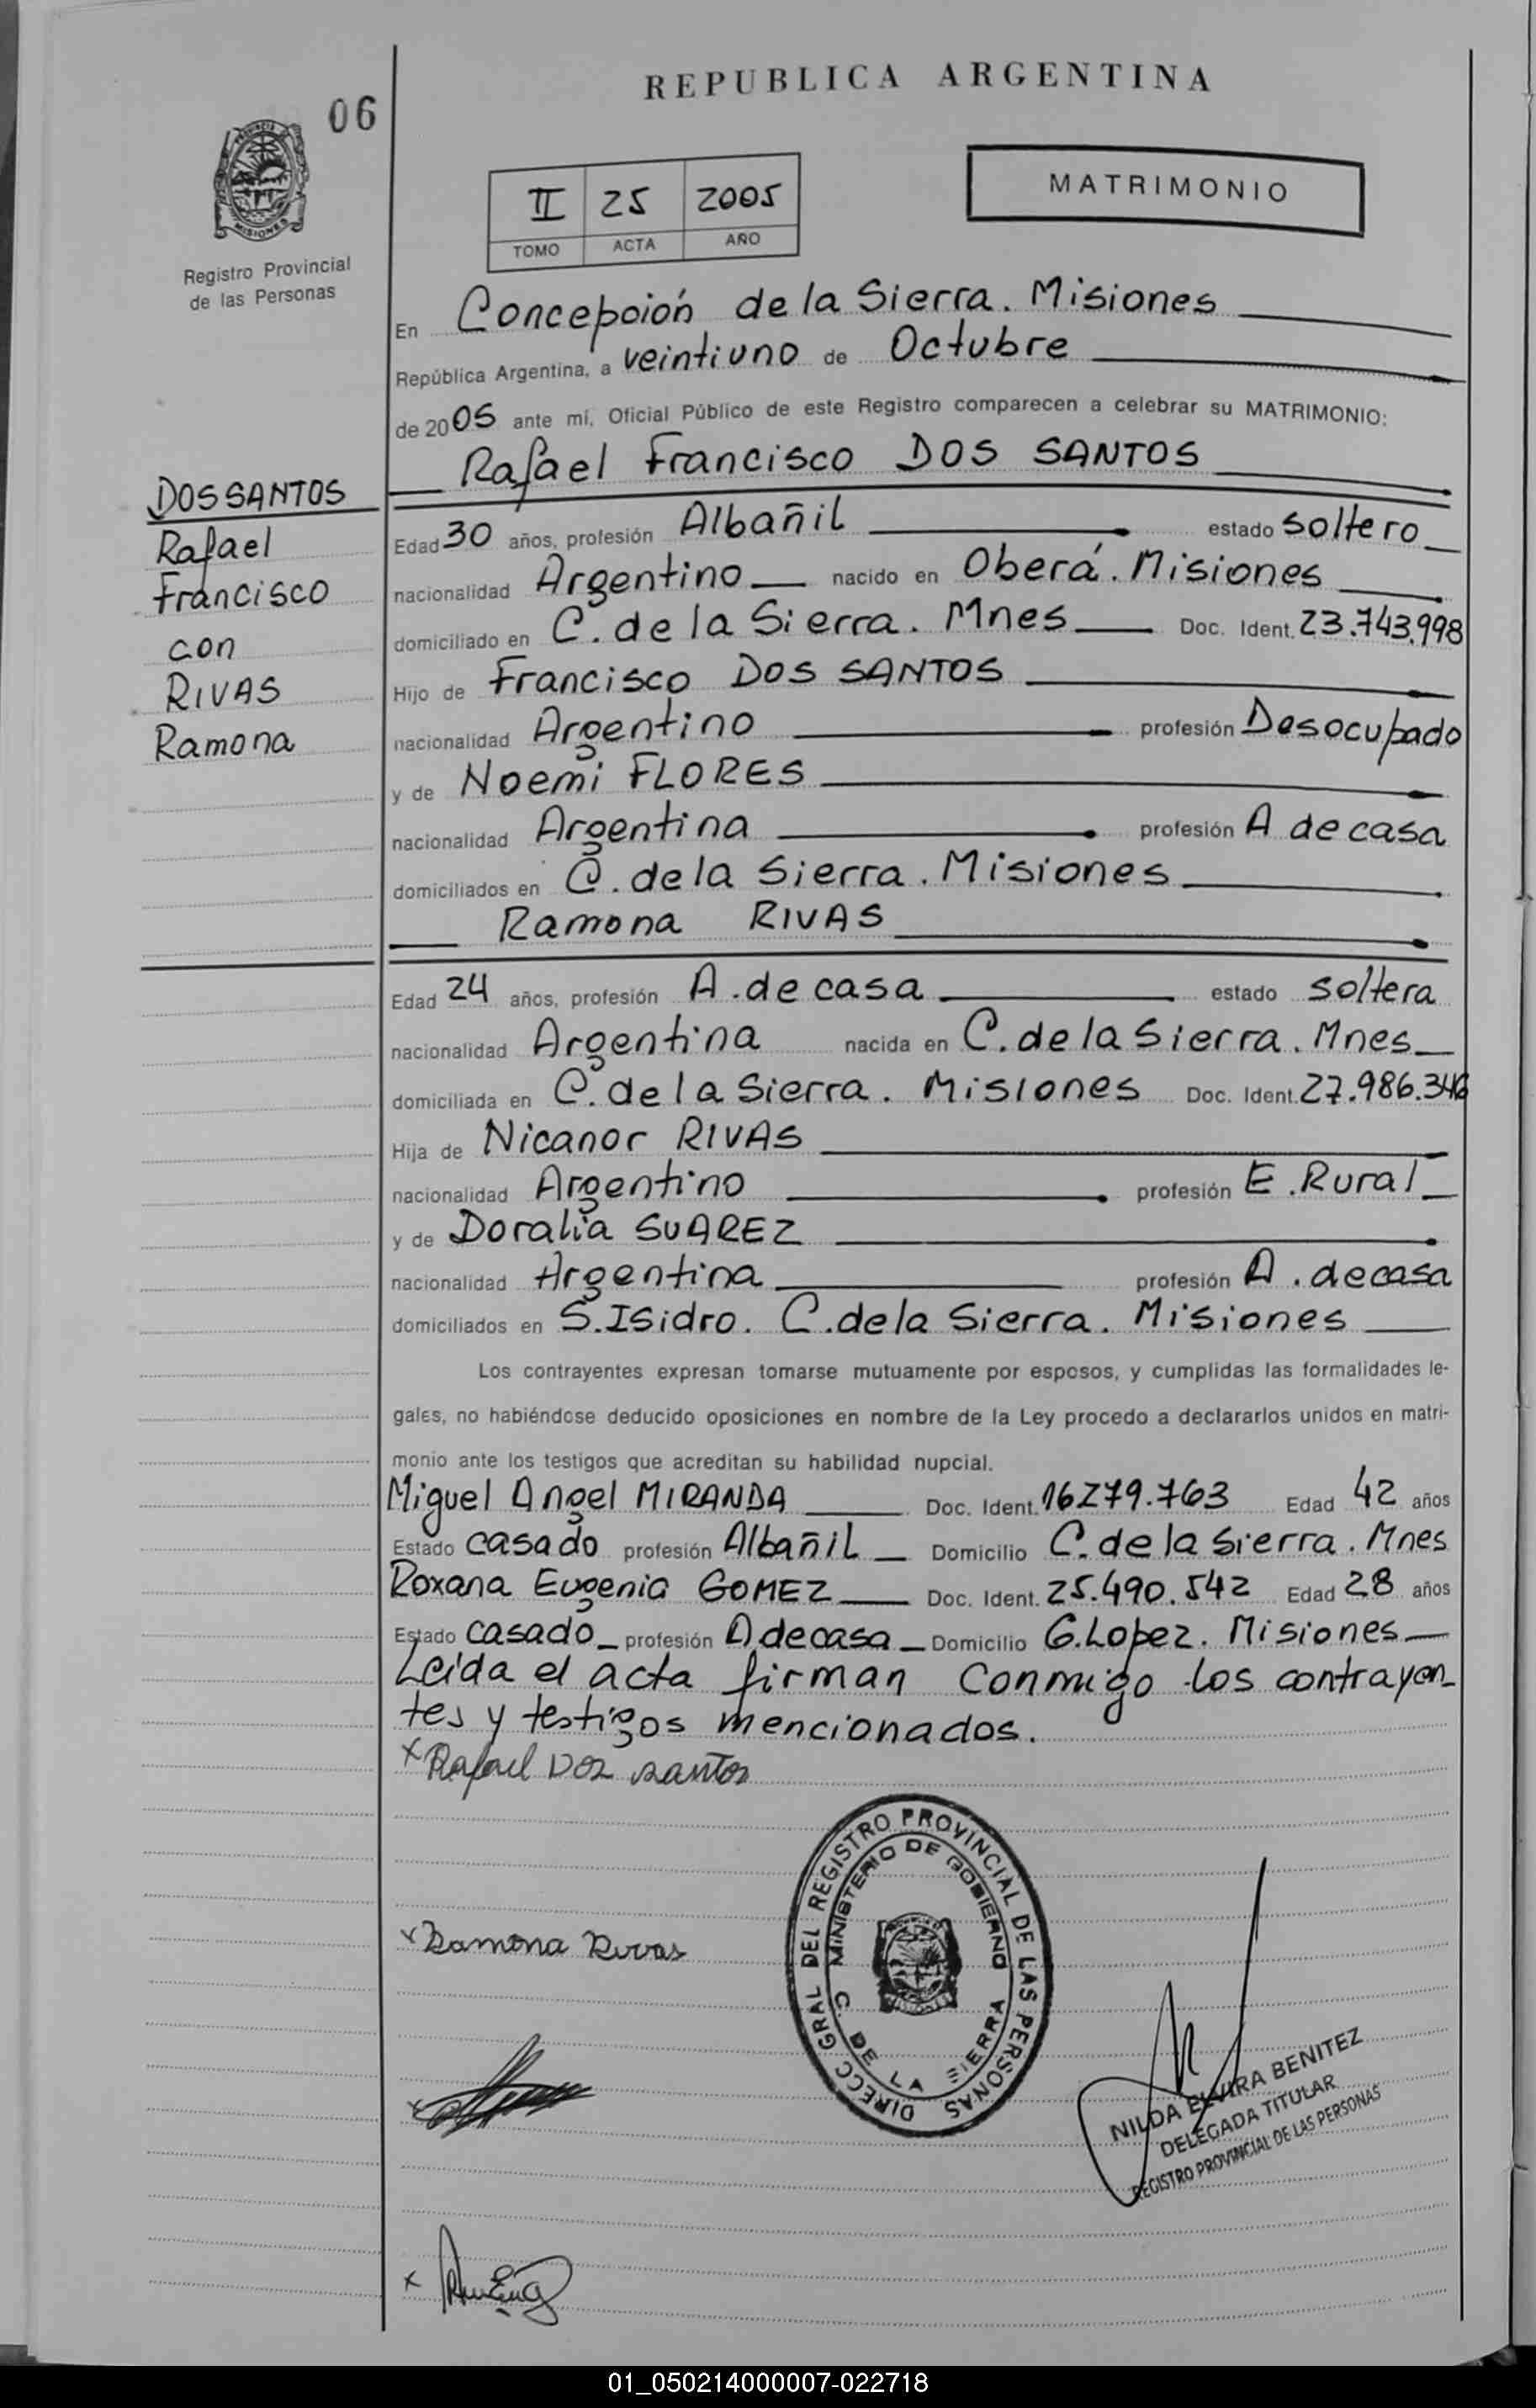 REPUBLICA ARGENTINA
06
PROVINCIA
MISIONES
Registro Provincial
de las Personas
II 25 2005
TOMO ACTA AÑO
MATRIMONIO
En Concepción de la Sierra. Misiones
República Argentina, a veintiuno de Octubre
de 2005 ante mí, Oficial Público de este Registro comparecen a celebrar su MATRIMONIO:
Rafael Francisco DOS SANTOS
DOS SANTOS
Rafael
Francisco
con
RIVAS
Ramona
Edad 30 años, profesión Albañil estado soltero
nacionalidad Argentino nacido en Oberá. Misiones
domiciliado en C. de la Sierra. Mnes Doc. Ident. 23.743.998
Hijo de Francisco DOS SANTOS
nacionalidad Argentino profesión Desocupado
y de Noemi FLORES
nacionalidad Argentina profesión A de casa
domiciliados en C. de la Sierra. Misiones
Ramona RIVAS
Edad 24 años, profesión A. de casa estado soltera
nacionalidad Argentina nacida en C. de la Sierra. Mnes
domiciliada en C. de la Sierra. Misiones Doc. Ident. 27.986.346
Hija de Nicanor RIVAS
nacionalidad Argentino profesión E. Rural
y de Doralia SUAREZ
nacionalidad Argentina profesión A. de casa
domiciliados en S. Isidro. C. de la Sierra. Misiones
Los contrayentes expresan tomarse mutuamente por esposos, y cumplidas las formalidades le-
gales, no habiéndose deducido oposiciones en nombre de la Ley procedo a declararlos unidos en matri-
monio ante los testigos que acreditan su habilidad nupcial.
Miguel Angel MIRANDA Doc. Ident. 16279.763 Edad 42 años
Estado casado profesión Albañil Domicilio C. de la Sierra. Mnes
Roxana Eugenia GOMEZ Doc. Ident. 25.490.542 Edad 28 años
Estado casado profesión A de casa Domicilio G. Lopez. Misiones
Leida el acta firman conmigo los contrayen-
tes y testigos mencionados.
x Rafael Dos santos
DIRECC GRAL DEL REGISTRO PROVINCIAL DE LAS PERSONAS
MINISTERIO DE GOBIERNO
C. DE LA SIERRA
x Ramona Rivas
NILDA ELVIRA BENITEZ
DELEGADA TITULAR
REGISTRO PROVINCIAL DE LAS PERSONAS
x
x
01_050214000007-022718